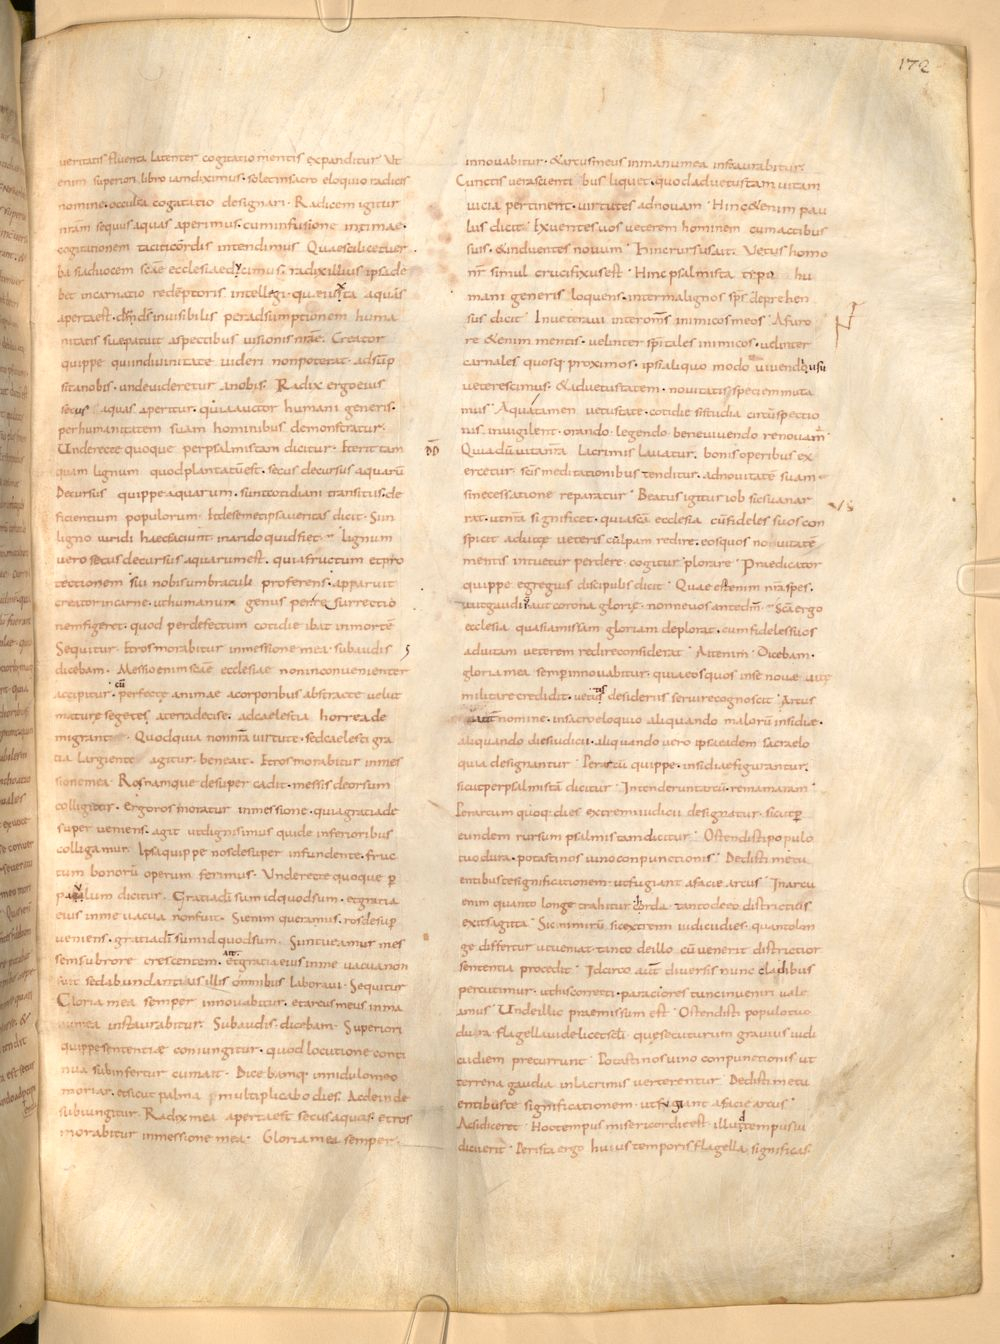 172
ueritatis fluenta latenter cogitatio mentis expanditur Ut
enim superiori libro iamdiximus. solet insacro eloquio radicis
nomine. occulta cogatatio designari. Radicem igitur
nram secus aquas aperimus. cum infusione intimae.
cogitationem taciti cordis intendimus Quae si licet uer
ba si aduocem scae ecclesiae ducimus. radix illius ipsa de
bet incarnatio redemptoris intellegi. quae iuxta aquas
aperta est. dum ds inuisibilis per adsumptionem huma
nitatis sue patuit aspectibus uisionis nrae. Creator
quippe qui in diuinitate uideri non poterat. adsump
sit a nobis. unde uideretur a nobis. Radix ergo eius
secus aquas aperitur. quia auctor humani generis.
per humanitatem suam hominibus demonstratur.
Unde recte quoque per psalmistam dicitur. Et erit tam
quam lignum quod plantatu est. secus decursus aquaru
Decursus quippe aquarum. sunt cotidiani transitus. de
ficientium populorum. Et de semetipsa ueritas dicit. Si in
ligno uiridi haec faciunt. in arido quid fiet. Lignum
uero secus decursus aquarum est. qui a fructum et pro
tectionem sui nobis umbracule proferens. apparuit
creator in carne. ut humanum genus per resurrectio
nem figeret. quod per defectum cotidie ibat in morte
Sequitur. Et ros morabitur in messione mea. subaudis
dicebam. Messio enim scae ecclesiae non inconuenienter
accipitur. cu perfecte animae a corporibus abstracte uelut
mature segetes a terra decise. ad caelestia horrea de
migrant. Quod quia non nra uirtute. sed caelesti gra
tia largiente agitur. bene ait. Et ros morabitur in mes
sione mea. Ros namque desuper cadit. messis deorsum
colligitur. Ergo ros moratur in messione. quia gratia de
super ueniens. agit ut digni simus qui de inferioribus
colligamur. Ipsa quippe nos desuper infundente. fruc
tum bonoru operum ferimus. Unde recte quoque p
paulum dicitur. Gratia di sum id quod sum. et gratia
eius in me uacua non fuit. Si enim queramus. ros desup
ueniens. gratia di sum id quod sum. Si intueamur mes
sem sub rore crescentem. ait. et gratia eius in me uacua non
fuit sed abundantius illis omnibus laboraui. Sequitur
Gloria mea semper innouabitur. et arcus meus in ma
nu mea instaurabitur. Subaudis. dicebam. Superiori
quippe sententiae coniungitur. quod locutione conti
nua subinfertur cum ait. Dicebamq; in nidulo meo
moriar. et sicut palma multiplicabo dies. Ac deinde
subiungitur. Radix mea aperta est secus aquas. et ros
morabitur in messione mea. Gloria mea semper.
DD
innouabitur. & arcus meus in manu mea instaurabitur.
Cunctis uera scienti bus liquet. quod ad uetustam uitam
uicia pertinent. uirtutes ad nouam. Hinc & enim pau
lus dicit. Exuentes uos ueterem hominem cum actibus
suis. & induentes nouum. Hinc rursus ait. Vetus homo
nr simul crucifixus est. Hinc psalmista typo hu
mani generis loquens. inter malignos sps deprehen
sus dicit. Inueteraui inter oms inimicos meos. A furo
re & enim mentis. uel inter spitales inimicos. uel inter
carnales quosq proximos. ipsa aliquo modo uiuendi usu
ueterescimus. & ad uetustatem. nouitatis speciem muta
mus. A qua tamen uetustate. cotidie si studia circuspectio
nis. inuigilent. orando. legendo. bene uiuendo renouam
Quia du uita nra lacrimis lauatur. bonis operibus ex
ercetur. scis meditationibus tenditur. ad nouitate suam
sine cessatione reparatur. Beatus igitur iob sic sua nar
rat. ut nra significet. quia sca ecclesia cu fideles suos con
spicit ad uitae ueteris culpam redire. eos quos nouitate
mentis intuetur perdere. cogitur plorare. Praedicator
quippe egregius discipulis dicit. Quae est enim nra spes.
aut gaudiu aut corona glorie. nonne uos ante dnm. Sca ergo
ecclesia quasi amissam gloriam deplorat. cum fideles suos
ad uitam ueterem redire considerat. At tenim. Dicebam.
gloria mea semp innouabitur. quia eos quos in se noue uite
militare credidit. uetustis desideriis seruire cognoscit. Arcus
autem nomine. in sacro eloquio aliquando maloru insidiae.
aliquando dies iudicii. aliquando uero ipsa eadem sacra elo
quia designantur. Per arcu quippe. insidiae figurantur.
sicut per psalmista dicitur. Intenderunt arcu. rem amaram.
Per arcum quoq. dies extremi iudicii designatur. sicut p
eundem rursum psalmistam dicitur. Ostendisti populo
tuo dura. potasti nos uino conpunctionis. Dedisti metu
entibus te significationem. ut fugiant a facie arcus. In arcu
enim quanto longe trahitur corda. tanto de eo districtius
exit sagitta. Sic nimiru sic extremi iudicii dies. quanto lon
ge differtur ut ueniat. tanto de illo cu uenerit districtior
sententia procedit. Idcirco aut diuersis nunc cladibus
percutimur. ut his correcti. paratiores tunc inueniri uale
amus. Unde illic praemissum est. Ostendisti populo tuo
dura. flagella uidelicet scli. que secuturum grauius iudi
cii diem precurrunt. Potasti nos uino conpunctionis ut
terrena gaudia in lacrimis uerterentur. Dedisti metu
entibus te significationem. ut fugiant a facie arcus.
Ac si diceret. Hoc tempus misericordie est. illud tempus iu
dicii erit. Per ista ergo huius temporis flagella. significas.